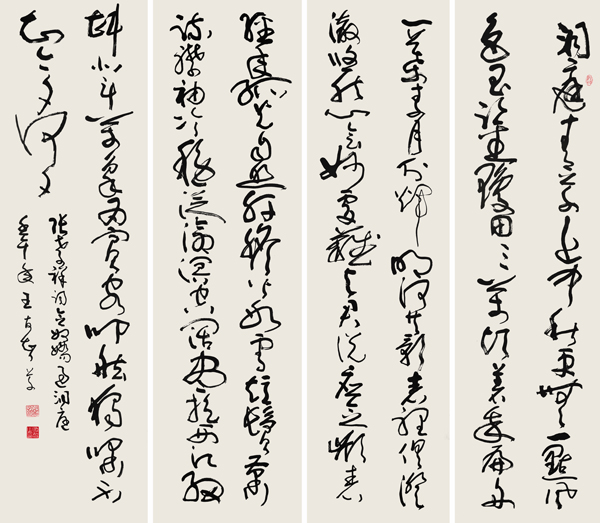 洞庭青草近中秋更無一點風
色玉鑑瓊田三萬頃著我扁舟
一葉素月分輝明河共影表裡俱澄
澈悠然心會妙處難與君說應念嶺表
經年孤光自照肝膽皆冰雪短鬢蕭
疏襟袖冷穩泛滄溟空闊盡挹西江細
斟北斗萬象為賓客叩舷獨嘯不
知今夕何夕
張孝祥詞念奴嬌過洞庭
壬午夏王草